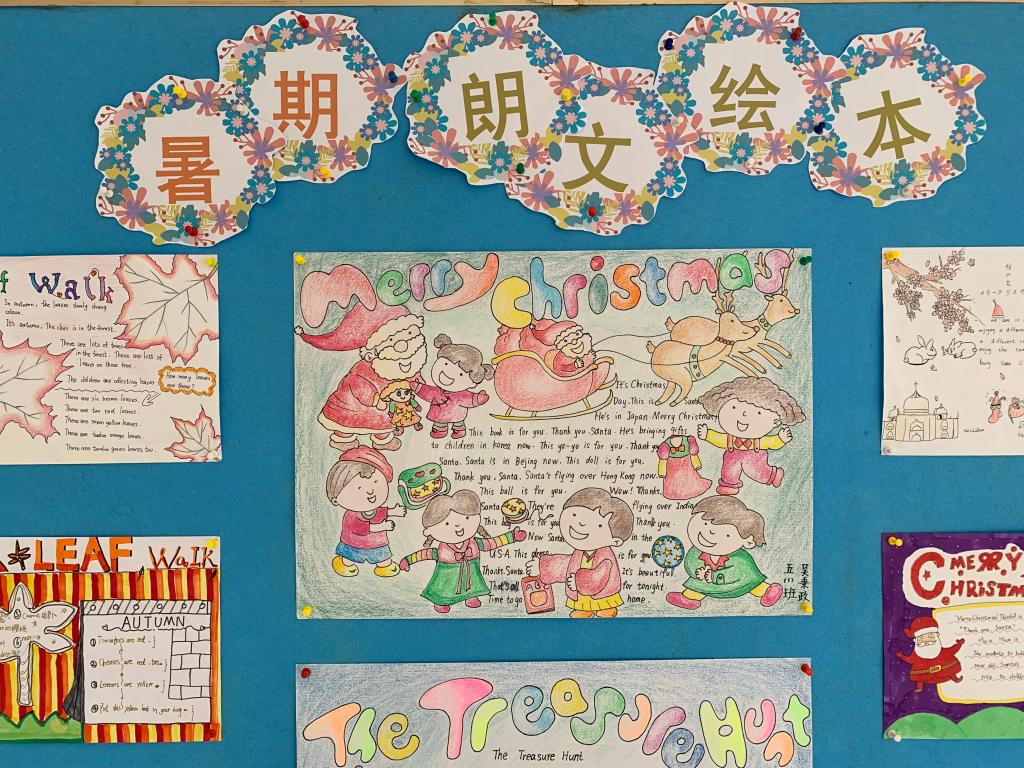 暑期朗文绘本
f Walk
In autumn, the leaves slowly change
colour.
It's autumn. The class is in the forest.
There are lots of trees
in the forest. There are lots of
leaves on them tree.
The children are collecting leaves.
How many leaves
are there?
There are six brown leaves.
There are ten red leaves.
There are seven yellow leaves.
There are twelve orange leaves.
There are twelve green leaves too.
Merry Christmas
It's Christmas
Day. This is Santa
He's in Japan. Merry Christmas
This book is for you. Thank you. Santa. He's bringing gifts
to children in Korea now. This yo-yo is for you. Thank you
Santa. Santa is in Beijing now. This doll is for you.
Thank you. Santa. Santa's flying over Hong Kong now.
This ball is for you. Wow! Thanks.
Santa They're flying over India
This is for you Thank you.
Now Santa in the
USA. This dress is for you
Thanks. Santa. It's beautiful.
That's all for tonight.
Time to go home
吴秉政
五(2)班
メリークリスマ
LEAF Walk
AUTUMN
① Tomatoes are red.
② Cherries are red, too.
③ Lemons are yellow.
④ Put this yellow leaf in your bag.
MERRY
CHRISTM
"Thank you, Santa."
The Treasure Hunt
The Treasure Hunt